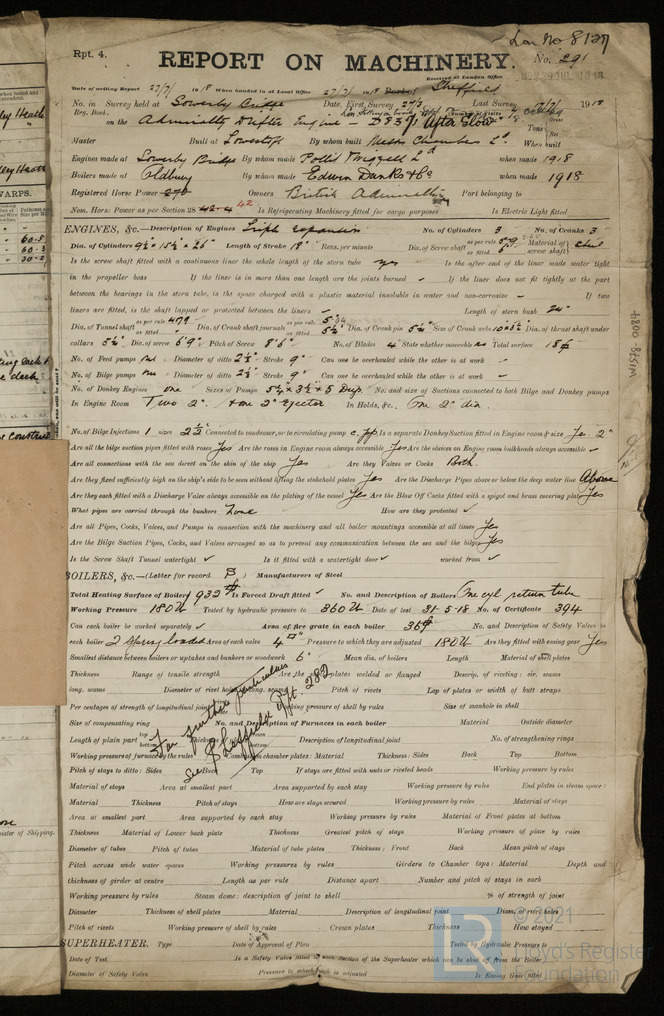 Lon No 8127
Rpt. 4.
REPORT ON MACHINERY.
No. 291
Received at London Office
Date of writing Report 27/7/ 1918 When handed in at Local Office 27/7/1918 Port of Sheffield
No. in Survey held at Sowerby Bridge Date, First Survey 27/5 Last Survey 17/7/ 1918
Reg. Book.
on the Admiralty Drifter Engine - D 8371 "After Glow"
Tons
Master Built at Lowestoft By whom built Messrs Chambers Ld When built
Engines made at Sowerby Bridge By whom made when made 1918
Boilers made at Oldbury By whom made Edwin Danks & Co when made 1918
Registered Horse Power 270 Owners British Admiralty Port belonging to
Nom. Horse Power as per Section 28 42.4 42 Is Refrigerating Machinery fitted for cargo purposes Is Electric Light fitted
ENGINES, &c.—Description of Engines Triple expansion No. of Cylinders 3 No. of Cranks 3
Dia. of Cylinders 9½ × 15½ × 26" Length of Stroke 18" Revs. per minute Dia. of Screw shaft as per rule as fitted Material of screw shaft steel
Is the screw shaft fitted with a continuous liner the whole length of the stern tube yes Is the after end of the liner made water tight
in the propeller boss If the liner is in more than one length are the joints burned If the liner does not fit tightly at the part
between the bearings in the stern tube, is the space charged with a plastic material insoluble in water and non-corrosive If two
liners are fitted, is the shaft lapped or protected between the liners Length of stern bush 24"
Dia. of Tunnel shaft as per rule 4.79 as fitted Dia. of Crank shaft journals as per rule 5.04 as fitted 5½ Dia. of Crank pin 5½ Size of Crank webs Dia. of thrust shaft under
collars 5½ Dia. of screw 6'9" Pitch of Screw 8'6" No. of Blades 4 State whether moveable no Total surface 18
No. of Feed pumps Diameter of ditto 2½ Stroke 9" Can one be overhauled while the other is at work
No. of Bilge pumps Diameter of ditto 2½ Stroke 9" Can one be overhauled while the other is at work
No. of Donkey Engines one Sizes of Pumps 5¼ × 3½ × 5 Dup. No. and size of Suctions connected to both Bilge and Donkey pumps
In Engine Room Two 2" + one 2" Ejector In Holds, &c. One 2" dia.
No. of Bilge Injections 1 sizes 2½ Connected to condenser, or to circulating pump c.pp Is a separate Donkey Suction fitted in Engine room & size Yes 2"
Are all the bilge suction pipes fitted with roses Yes Are the roses in Engine room always accessible Yes Are the sluices on Engine room bulkheads always accessible
Are all connections with the sea direct on the skin of the ship Yes Are they Valves or Cocks Both.
Are they fixed sufficiently high on the ship's side to be seen without lifting the stokehold plates Yes Are the Discharge Pipes above or below the deep water line Above
Are they each fitted with a Discharge Valve always accessible on the plating of the vessel Yes Are the Blow Off Cocks fitted with a spigot and brass covering plate Yes
What pipes are carried through the bunkers None How are they protected
Are all Pipes, Cocks, Valves, and Pumps in connection with the machinery and all boiler mountings accessible at all times Yes
Are the Bilge Suction Pipes, Cocks, and Valves arranged so as to prevent any communication between the sea and the bilges Yes
Is the Screw Shaft Tunnel watertight Is it fitted with a watertight door worked from
BOILERS, &c.—(Letter for record B) Manufacturers of Steel
Total Heating Surface of Boilers 932 Is Forced Draft fitted No. and Description of Boilers One cyl return tube
Working Pressure 180 lb Tested by hydraulic pressure to 360 lb Date of test 31-5-18 No. of Certificate 394
Can each boiler be worked separately Area of fire grate in each boiler 36 No. and Description of Safety Valves to
each boiler 2 Spring loaded Area of each valve 4 Pressure to which they are adjusted 180 lb Are they fitted with easing gear Yes
Smallest distance between boilers or uptakes and bunkers or woodwork 6" Mean dia. of boilers Length Material of shell plates
Thickness Range of tensile strength Are the shell plates welded or flanged Descrip. of riveting: cir. seams
long. seams Diameter of rivet holes in long. seams Pitch of rivets Lap of plates or width of butt straps
Per centages of strength of longitudinal joint Working pressure of shell by rules Size of manhole in shell
Size of compensating ring No. and Description of Furnaces in each boiler Material Outside diameter
For further particulars
See Sheffield Rpt 282
Length of plain part top bottom Thickness of plates crown bottom Description of longitudinal joint No. of strengthening rings
Working pressure of furnace by the rules Combustion chamber plates: Material Thickness: Sides Back Top Bottom
Pitch of stays to ditto: Sides Back Top If stays are fitted with nuts or riveted heads Working pressure by rules
Material of stays Area at smallest part Area supported by each stay Working pressure by rules End plates in steam space:
Material Thickness Pitch of stays How are stays secured Working pressure by rules Material of stays
Area at smallest part Area supported by each stay Working pressure by rules Material of Front plates at bottom
Thickness Material of Lower back plate Thickness Greatest pitch of stays Working pressure of plate by rules
Diameter of tubes Pitch of tubes Material of tube plates Thickness: Front Back Mean pitch of stays
Pitch across wide water spaces Working pressures by rules Girders to Chamber tops: Material Depth and
thickness of girder at centre Length as per rule Distance apart Number and pitch of stays in each
Working pressure by rules Steam dome: description of joint to shell % of strength of joint
Diameter Thickness of shell plates Material Description of longitudinal joint Diam. of rivet holes
Pitch of rivets Working pressure of shell by rules Crown plates Thickness How stayed
SUPERHEATER. Type Date of Approval of Plan Tested by Hydraulic Pressure to
Date of Test Is a Safety Valve fitted to each Section of the Superheater which can be shut off from the Boiler
Diameter of Safety Valve Pressure to which each is adjusted Is Easing Gear fitted
W1578-0084
© 2021
Lloyd's Register
Foundation